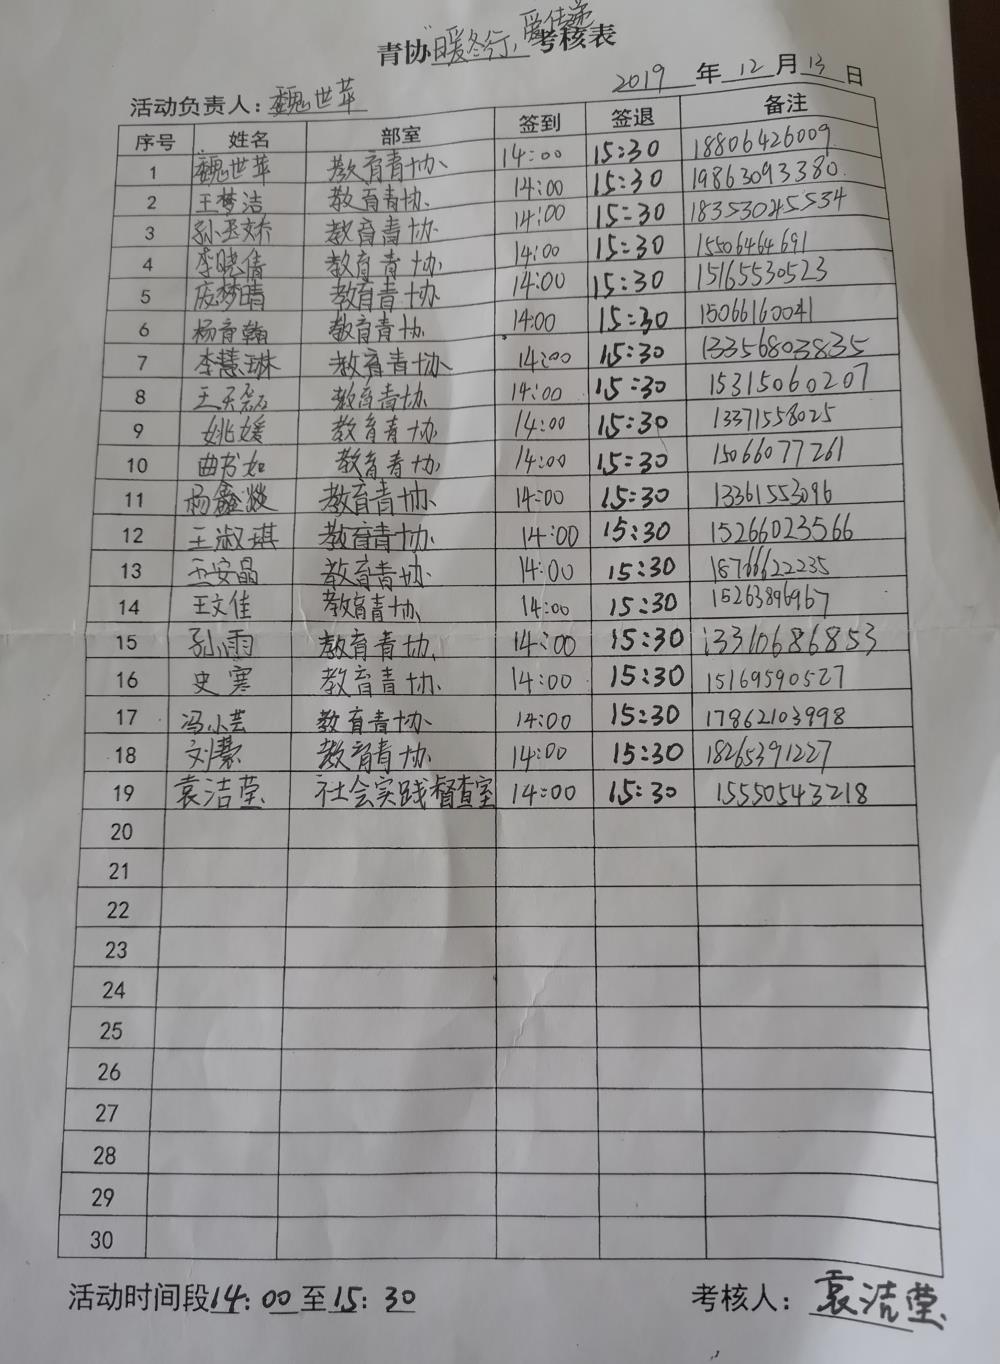 青协"暖冬行,爱传递考核表
2019年12月13日
活动负责人:魏世苹
序号 姓名 部室 签到 签退 备注
1 魏世苹 教育青协 14:00 15:30 18806426009
2 王梦洁 教育青协 14:00 15:30 19863093380
3 孙玉娇 教育青协 14:00 15:30 18353045534
4 李晓倩 教育青协 14:00 15:30 15506464691
5 庞梦晴 教育青协 14:00 15:30 15165530523
6 杨育翰 教育青协 14:00 15:30 15066160041
7 李慧琳 教育青协 14:00 15:30 13356803835
8 王天磊 教育青协 14:00 15:30 15315060207
9 姚媛 教育青协 14:00 15:30 13371558025
10 曲书如 教育青协 14:00 15:30 15066077261
11 杨鑫燚 教育青协 14:00 15:30 13361553096
12 王淑琪 教育青协 14:00 15:30 15266023566
13 王安晶 教育青协 14:00 15:30 18766622235
14 王文佳 教育青协 14:00 15:30 15263896967
15 孙雨 教育青协 14:00 15:30 13310686853
16 史寒 教育青协 14:00 15:30 15169590527
17 冯小芸 教育青协 14:00 15:30 17862103998
18 刘蕠 教育青协 14:00 15:30 18265391227
19 袁洁莹 社会实践督查室 14:00 15:30 15550543218
20
21
22
23
24
25
26
27
28
29
30
活动时间段14:00至15:30 考核人:袁洁莹